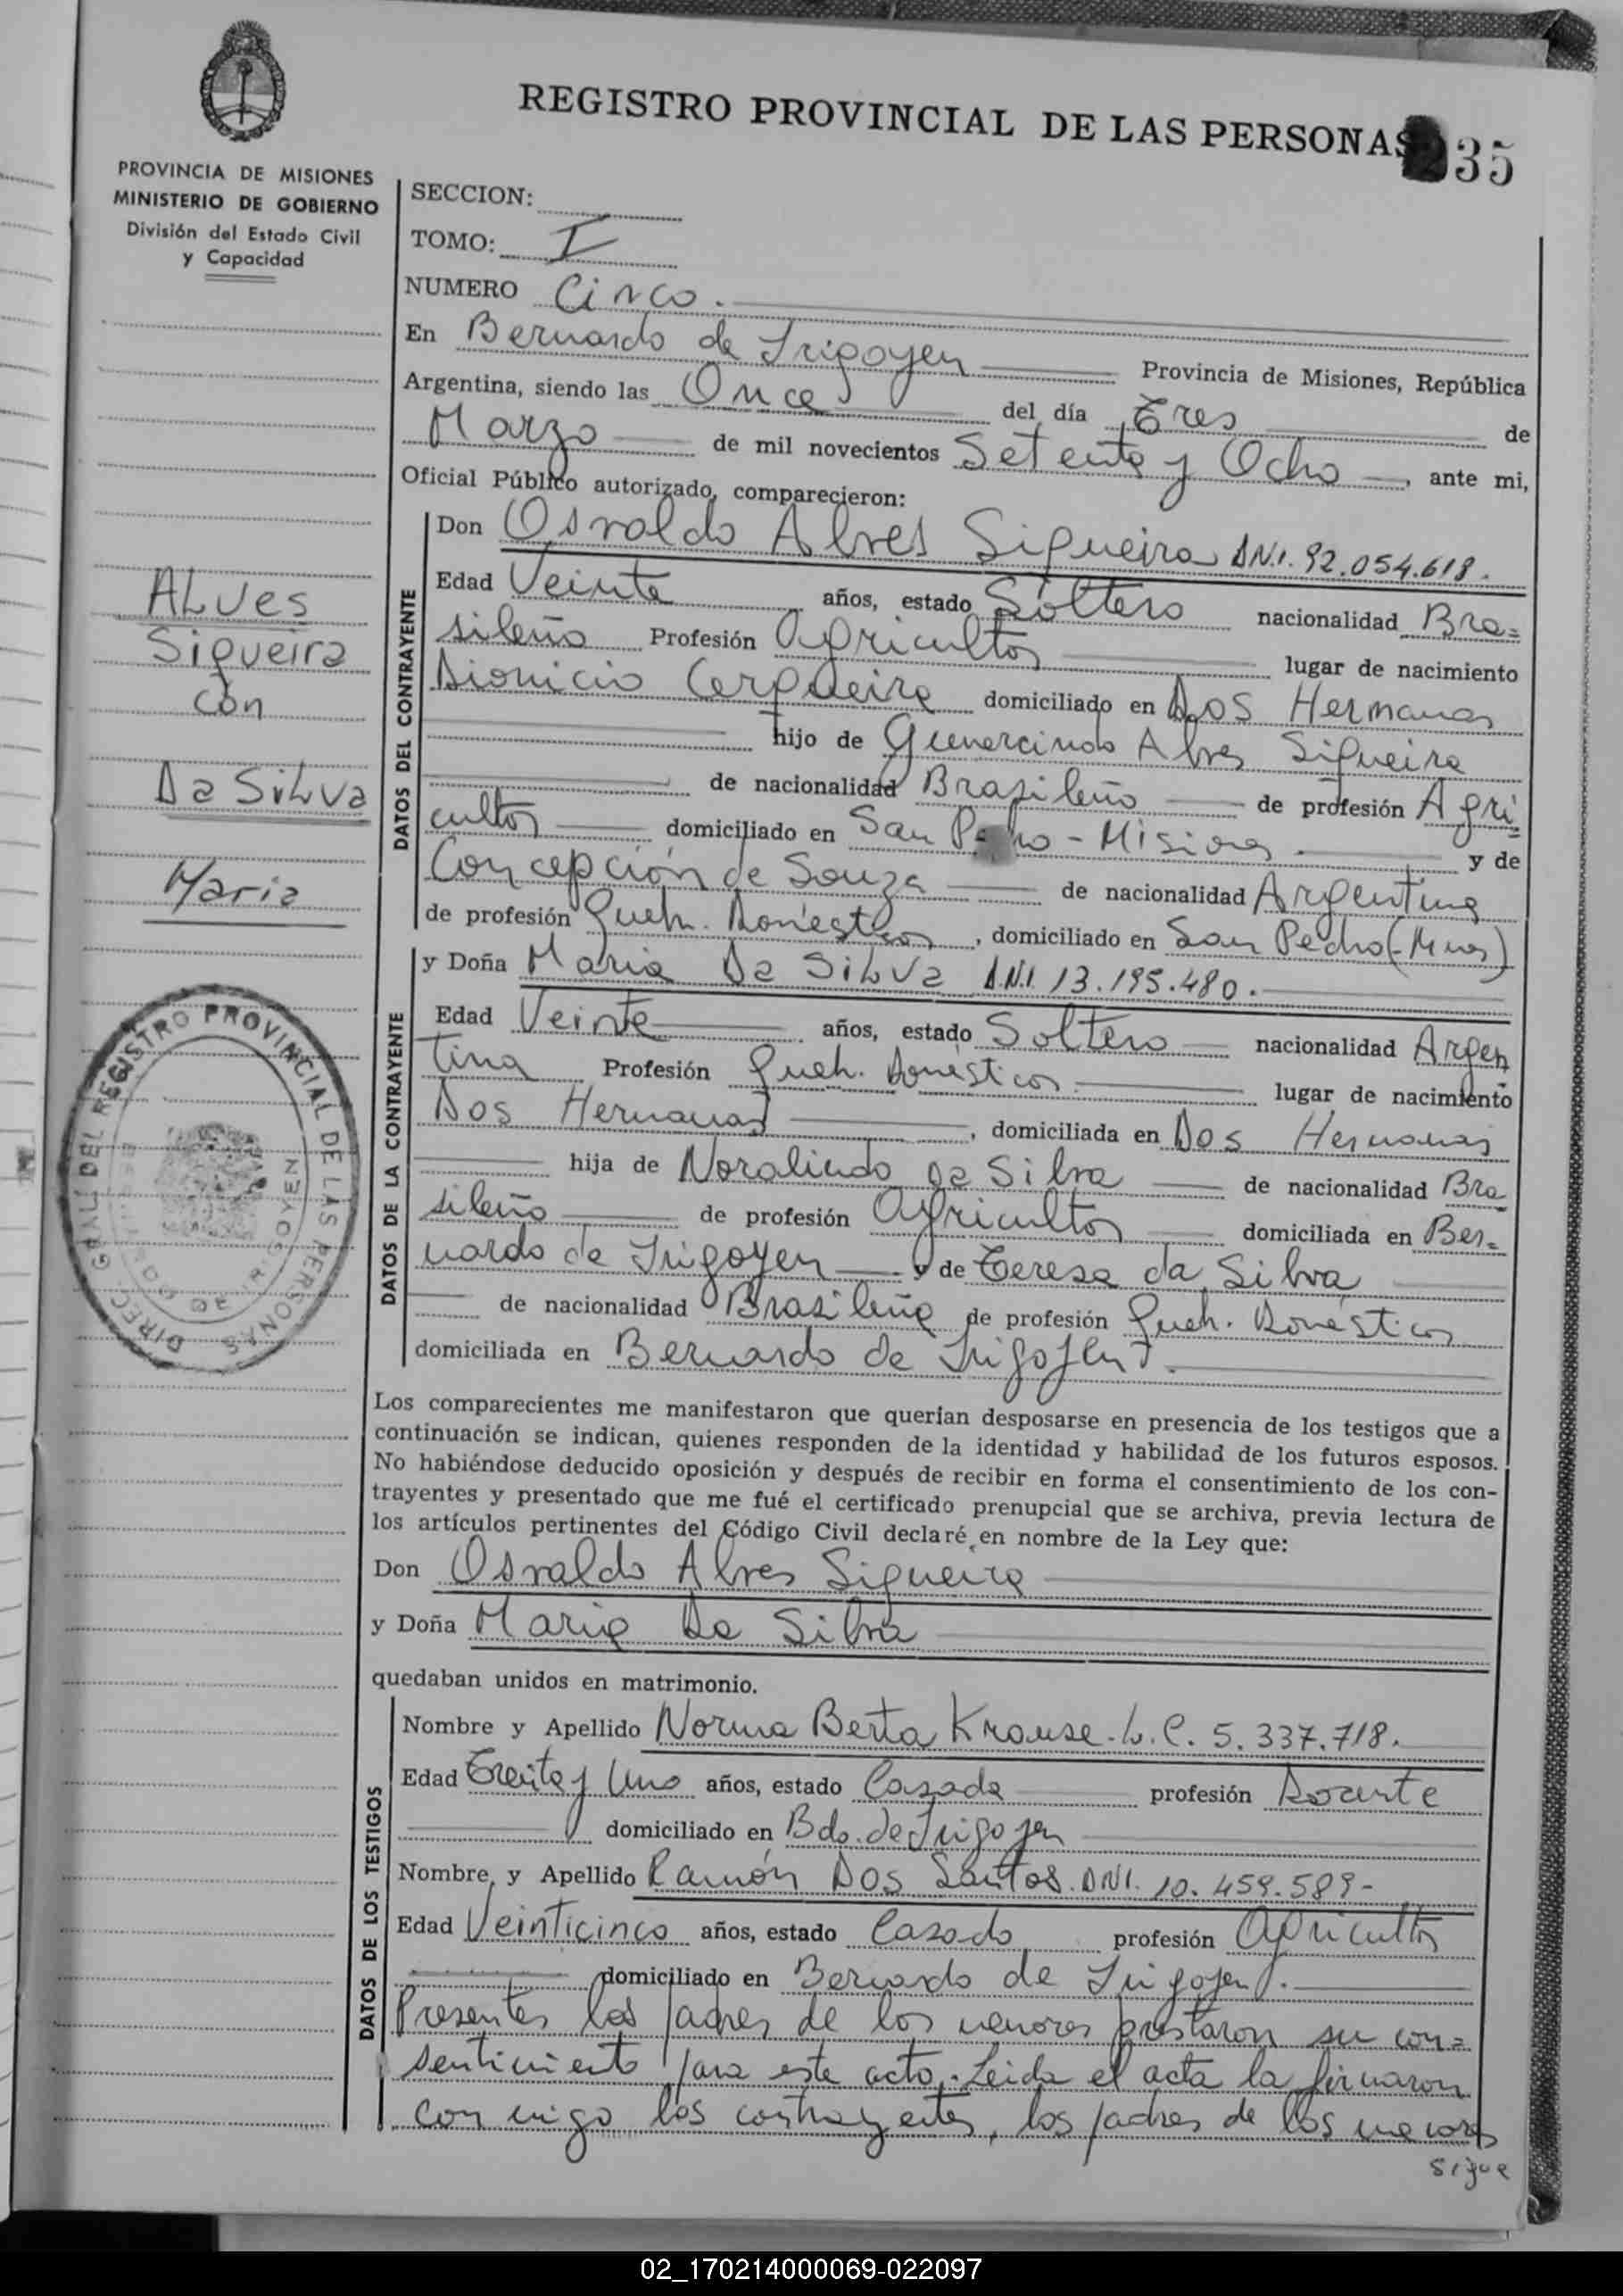 REGISTRO PROVINCIAL DE LAS PERSONAS
35
PROVINCIA DE MISIONES
MINISTERIO DE GOBIERNO
División del Estado Civil
y Capacidad
SECCION:
TOMO: I
NUMERO Cinco.
En Bernardo de Irigoyen Provincia de Misiones, República
Argentina, siendo las Once del día Tres de
Marzo de mil novecientos Setenta y Ocho, ante mi,
Oficial Público autorizado, comparecieron:
ALVes
Siqueira
con
Da SiLva
Maria
DATOS DEL CONTRAYENTE
Don Osvaldo Alves Siqueira DN.I. 92.054.618.
Edad Veinte años, estado Soltero nacionalidad Bra=
sileño Profesión Agricultor lugar de nacimiento
Dionicio Cerqueira domiciliado en Dos Hermanas
hijo de Gumercindo Alves Siqueira
de nacionalidad Brasileño de profesión Agri
cultor domiciliado en San Pedro - Misiones y de
Concepción de Souza de nacionalidad Argentina
de profesión Queh. Domésticos, domiciliado en San Pedro (Mnes)
DATOS DE LA CONTRAYENTE
y Doña Maria Da SiLva D.N.I. 13.195.480.
Edad Veinte años, estado Soltera nacionalidad Argen
tina Profesión Queh. Domésticos lugar de nacimiento
Dos Hermanas, domiciliada en Dos Hermanas
hija de Noralindo da Silva de nacionalidad Bra
sileño de profesión Agricultor domiciliada en Ber=
nardo de Irigoyen y de Teresa da Silva
de nacionalidad Brasileña de profesión Queh. Domésticos
domiciliada en Bernardo de Irigoyen.
DIREC. GRAL. DEL REGISTRO PROVINCIAL DE LAS PERSONAS
BERNARDO DE IRIGOYEN
Los comparecientes me manifestaron que querían desposarse en presencia de los testigos que a
continuación se indican, quienes responden de la identidad y habilidad de los futuros esposos.
No habiéndose deducido oposición y después de recibir en forma el consentimiento de los con-
trayentes y presentado que me fué el certificado prenupcial que se archiva, previa lectura de
los artículos pertinentes del Código Civil declaré en nombre de la Ley que:
Don Osvaldo Alves Siqueira
y Doña Maria Da Silva
quedaban unidos en matrimonio.
DATOS DE LOS TESTIGOS
Nombre y Apellido Norma Berta Krause. L.C. 5.337.718.
Edad Treinta y Uno años, estado Casada profesión Docente
domiciliado en Bdo. de Irigoyen
Nombre y Apellido Ramón Dos Santos. DNI. 10.459.589-
Edad Veinticinco años, estado Casado profesión Agricultor
domiciliado en Bernardo de Irigoyen.
Presentes los padres de los menores prestaron su con=
sentimiento para este acto. Leida el acta la firmaron
con migo los contrayentes, los padres de los menores
sigue
02_170214000069-022097